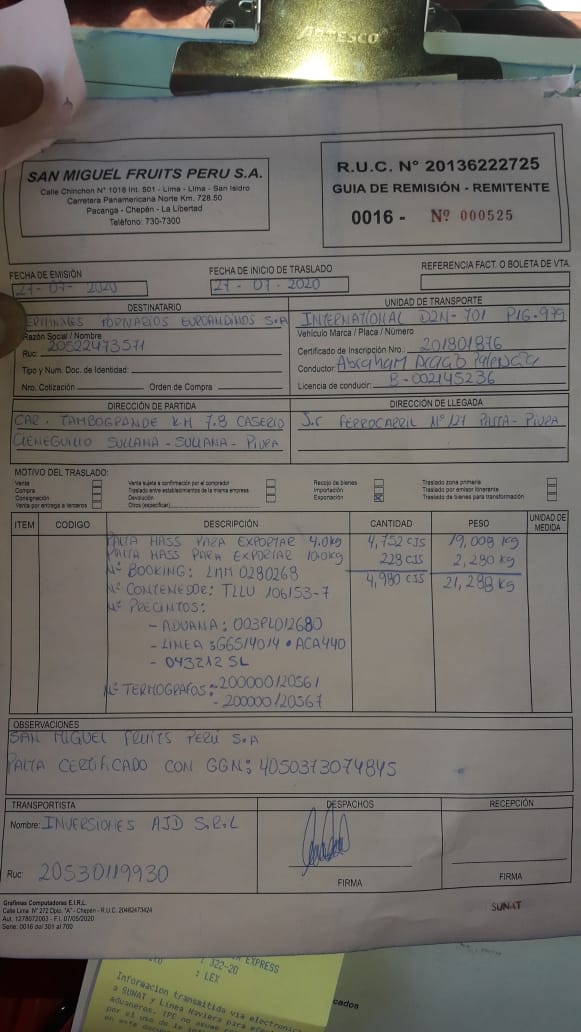 ARTESCO
SAN MIGUEL FRUITS PERU S.A.
Calle Chinchon N° 1018 Int. 501 - Lima - Lima - San Isidro
Carretera Panamericana Norte Km. 728.50
Pacanga - Chepén - La Libertad
Teléfono: 730-7300
R.U.C. N° 20136222725
GUIA DE REMISIÓN - REMITENTE
0016 - Nº 000525
FECHA DE EMISIÓN
27-07-2020
FECHA DE INICIO DE TRASLADO
27-07-2020
REFERENCIA FACT. O BOLETA DE VTA.
DESTINATARIO
TERMINALES PORTUARIOS EUROANDINOS S.A
Razón Social / Nombre
Ruc: 20522473571
Tipo y Num. Doc. de Identidad:
Nro. Cotización Orden de Compra
UNIDAD DE TRANSPORTE
INTERNATIONAL D2N-701 P1G-979
Vehículo Marca / Placa / Número
Certificado de Inscripción Nro.: 201801876
Conductor: Abraham
Licencia de conducir: B-002145236
DIRECCIÓN DE PARTIDA
CAR. TAMBOGRANDE KM 7.8 CASERIO
CIENEGUILLO SULLANA - SULLANA - PIURA
DIRECCIÓN DE LLEGADA
J.r FERROCARRIL Nº 127 PAITA - PIURA
MOTIVO DEL TRASLADO:
Venta
Compra
Consignación
Venta por entrega a terceros
Venta sujeta a confirmación por el comprador
Traslado entre establecimientos de la misma empresa
Devolución
Otros (especificar)
Recojo de bienes
Importación
Exportación X
Traslado zona primaria
Traslado por emisor itinerante
Traslado de bienes para transformación
ITEM CODIGO DESCRIPCIÓN CANTIDAD PESO UNIDAD DE MEDIDA
PALTA HASS PARA EXPORTAR 4.0kg 4,752 CJS 19,008 kg
PALTA HASS PARA EXPORTAR 10.0kg 228 CJS 2,280 kg
Nº BOOKING: LMM 0280268 4,980 CJS 21,288 kg
Nº CONTENEDOR: TLLU 106153-7
Nº PRECINTOS:
- ADUANA: 003PL012680
- LINEA: G6514014 • ACA440
- 043212 SL
Nº TERMOGRAFOS: - 200000120561
- 200000120567
OBSERVACIONES
SAN MIGUEL FRUITS PERÚ S.A
PALTA CERTIFICADO CON GGN: 4050373074845
TRANSPORTISTA
Nombre: INVERSIONES AJD S.R.L
Ruc: 20530119930
DESPACHOS
FIRMA
RECEPCIÓN
FIRMA
Grafimas Computadoras E.I.R.L.
Calle Lima N° 272 Dpto. "A" - Chepén - R.U.C. 20482473424
Aut. 1278072063 - F.I. 07/05/2020
Serie: 0016 del 301 al 700
SUNAT
EXPRESS
: 322-20
: LEX
Informacion transmitida via electronica
a SUNAT y Linea Naviera para
aduaneros.
cados